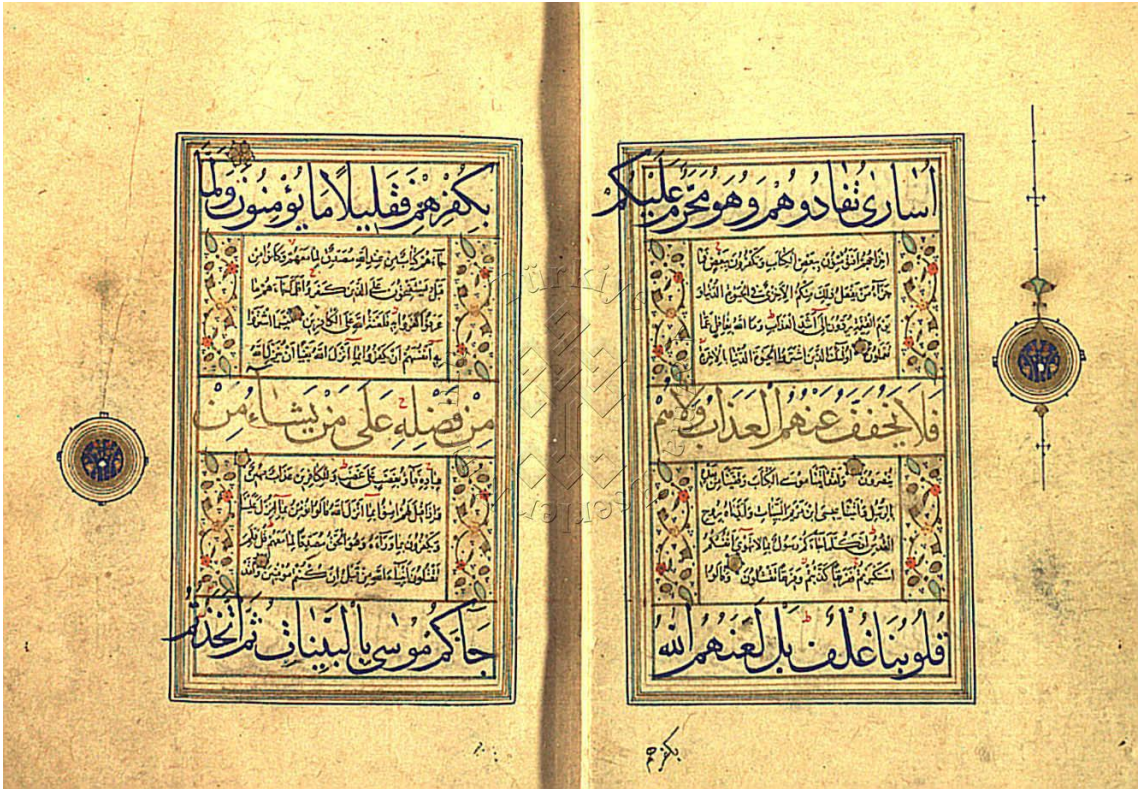 اُسَارٰى تُفَادُوهُمْ وَهُوَ مُحَرَّمٌ عَلَيْكُمْ
اخراجهم افتؤمنون ببعض الكتاب وتكفرون ببعض فما
جزآء من يفعل ذلك منكم الا خزى فى الحيوة الدنيا و
يوم القيمة يردون الى اشد العذاب وما الله بغافل عما
تعملون اولئك الذين اشتروا الحيوة الدنيا بالاخرة
فَلَا يُخَفَّفُ عَنْهُمُ الْعَذَابُ وَلَا هُمْ
ينصرون ولقد اتينا موسى الكتاب وقفينا من بعده
بالرسل واتينا عيسى ابن مريم البينات وايدناه بروح
القدس افكلما جاءكم رسول بما لا تهوى انفسكم
استكبرتم ففريقا كذبتم وفريقا تقتلون وقالوا
قُلُوبُنَا غُلْفٌ بَلْ لَعَنَهُمُ اللّٰهُ
بكفرهم
بِكُفْرِهِمْ فَقَلِيلًا مَا يُؤْمِنُونَ وَلَمَّا
جآءهم كتاب من عند الله مصدق لما معهم وكانوا من
قبل يستفتحون على الذين كفروا فلما جآءهم ما
عرفوا كفروا به فلعنة الله على الكافرين بئسما اشتروا
به انفسهم ان يكفروا بما انزل الله بغيا ان ينزل الله
مِنْ فَضْلِهِ عَلَى مَنْ يَشَاءُ مِنْ
عباده فبآؤ بغضب على غضب وللكافرين عذاب مهين
واذا قيل لهم امنوا بما انزل الله قالوا نؤمن بما انزل علينا
ويكفرون بما ورآءه وهو الحق مصدقا لما معهم قل فلم
تقتلون انبيآء الله من قبل ان كنتم مؤمنين ولقد
جَآءَكُمْ مُوسٰى بِالْبَيِّنَاتِ ثُمَّ اتَّخَذْتُمُ
türkiye